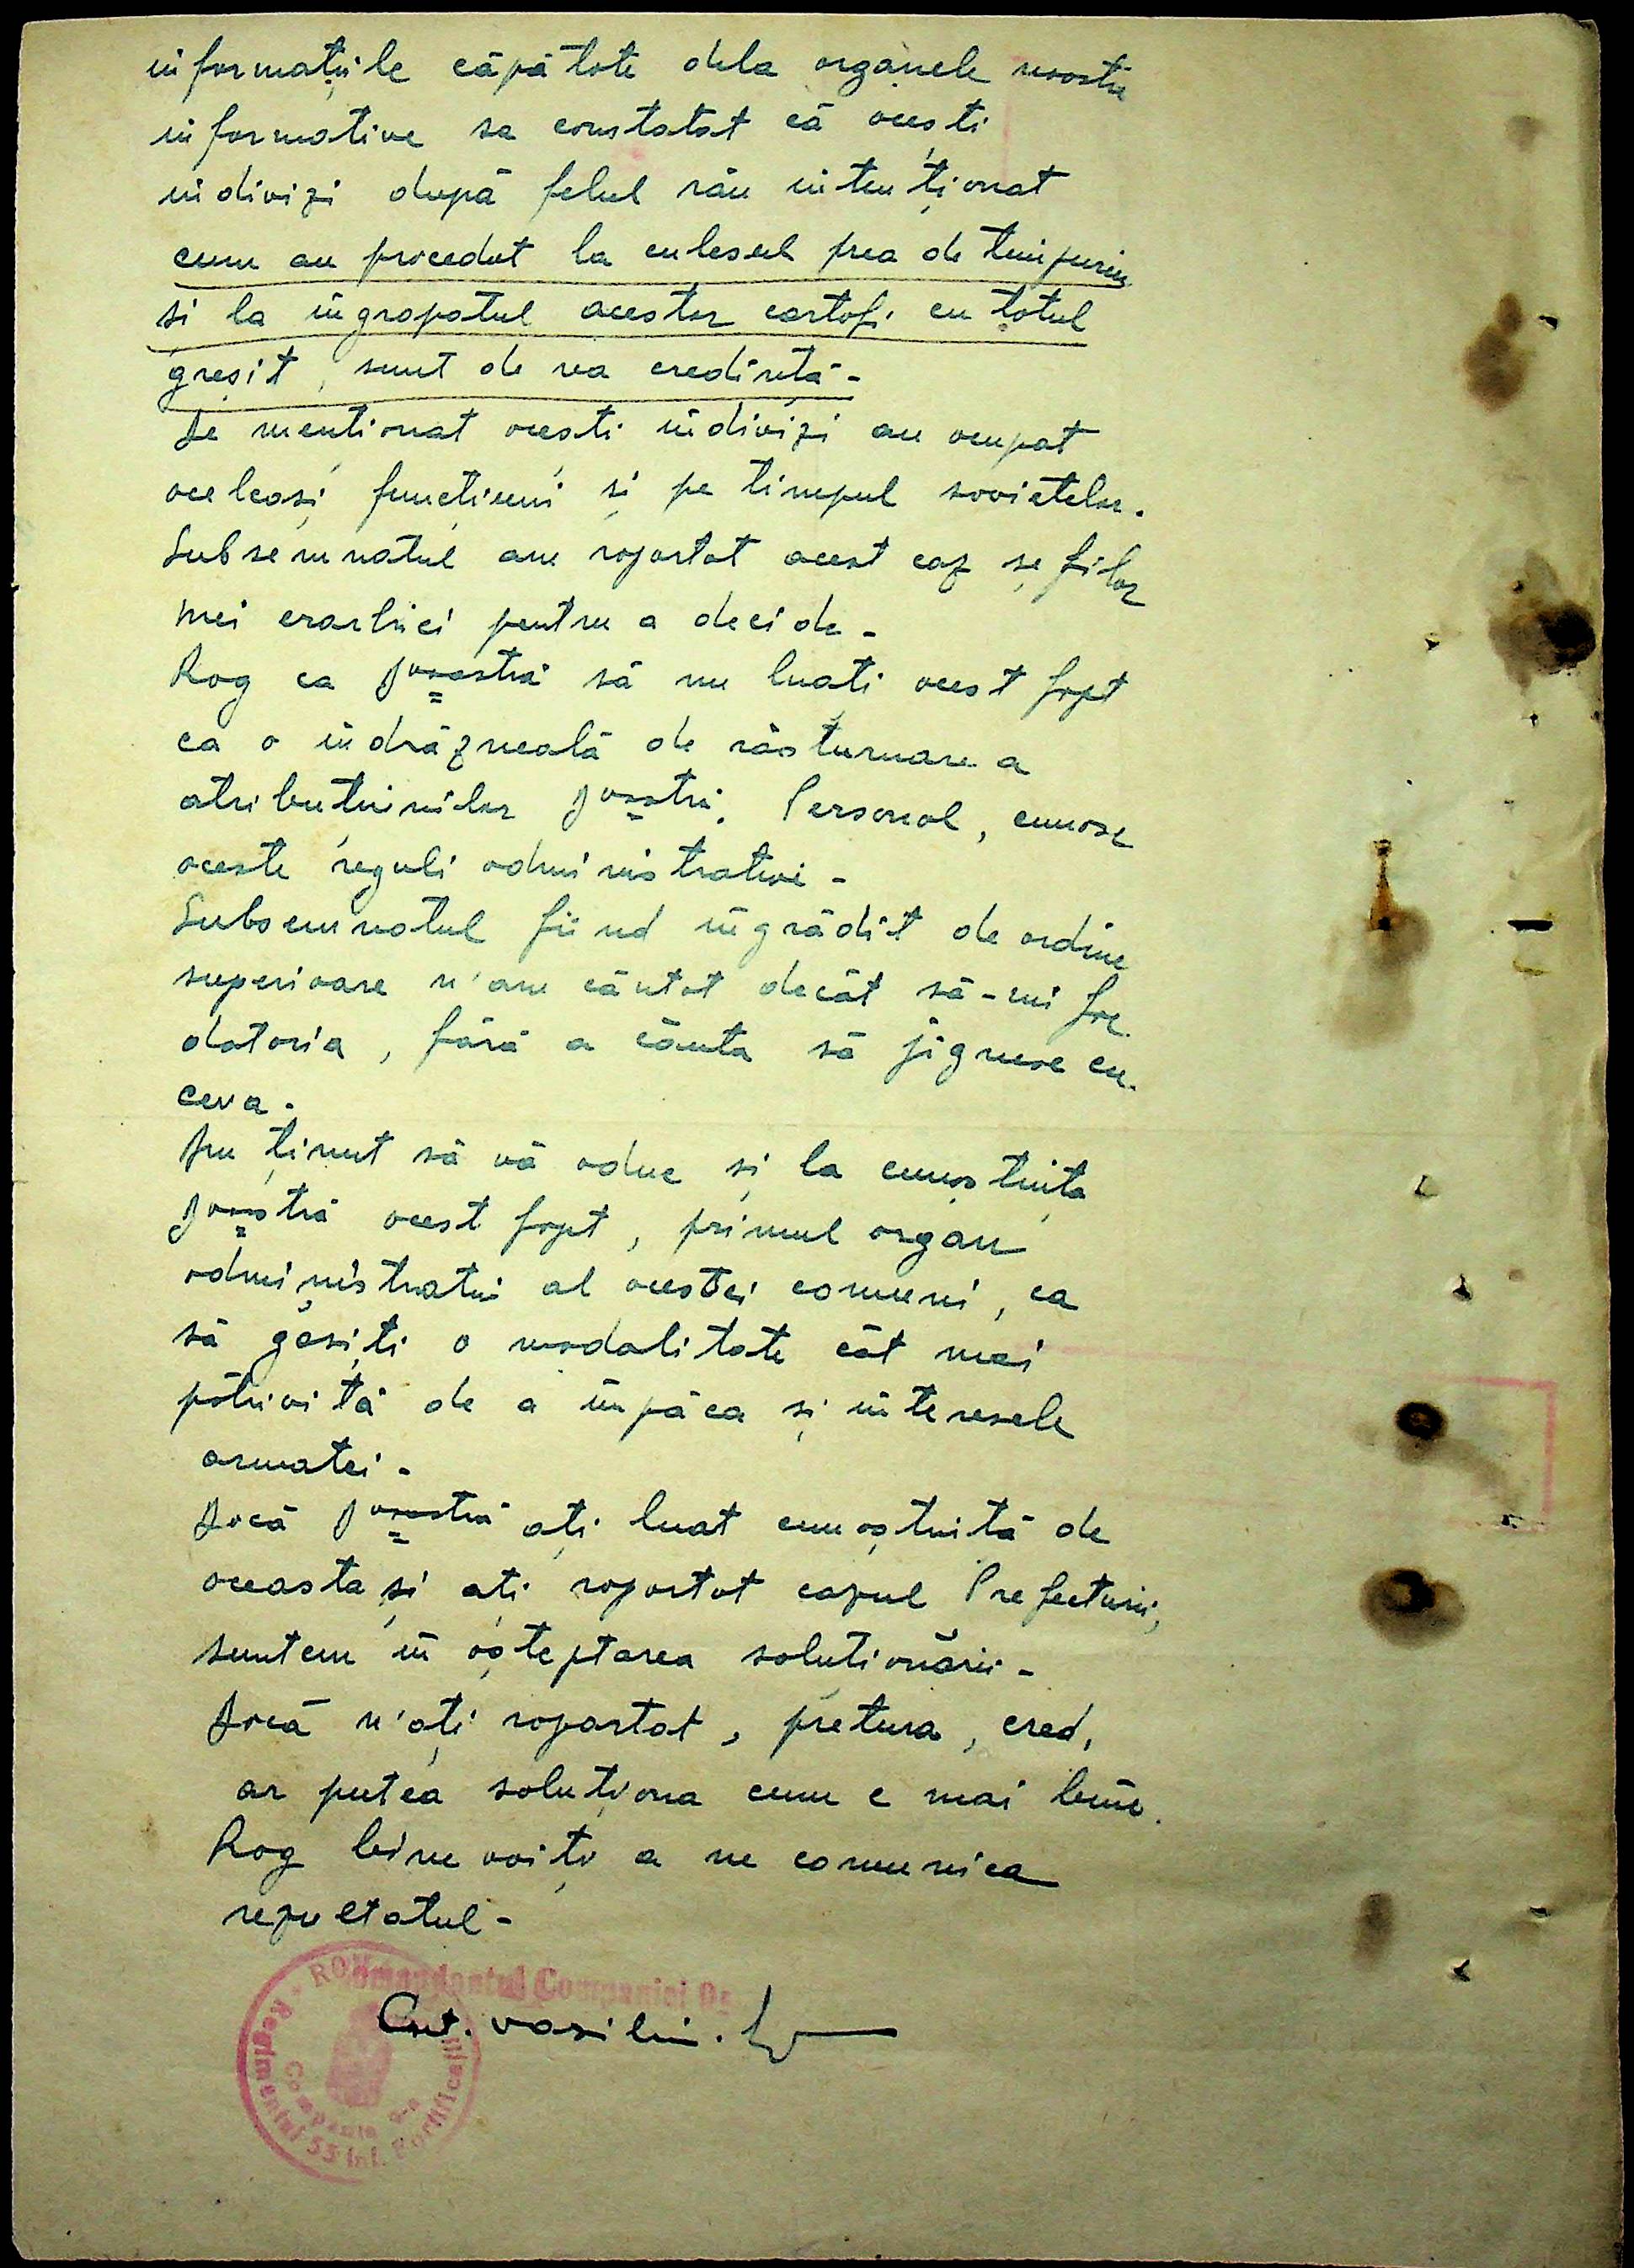 informațiile căpătate dela organele noastre
informative sa constatat că acești
indivizi după felul rău intenționat
cum au procedat la culesul prea de timpuriu
si la ingropatul acestor cartofi cu totul
greșit, sunt de rea credință -
De menționat acesti indivizi au ocupat
aceleași funcțiuni și pe timpul sovietelor.
Subsemnatul am raportat acest caz șefilor
mei erarhici pentru a decide -
Rog ca Dvoastră să nu luați acest fapt
ca o indrăzneală de răsturnare a
atribuțiunilor Dvoastră. Personal, cunosc
aceste reguli administrative -
Subsemnatul fiind ingrădit de ordine
superioare n'am căutat decât să-mi fac
datoria, fără a căuta să jignesc cu
ceva.
Am ținut să vă aduc și la cunoștința
Dvoastră acest fapt, primul organ
administrativ al acestei comuni, ca
să găsiți o modalitate cât mai
potrivită de a impăca și interesele
armatei -
Dacă Dvoastră ați luat cunoștință de
aceasta și ați raportat cazul Prefecturii,
suntem in așteptarea soluționării -
Dacă n'ați raportat, pretura, cred,
ar putea soluționa cum e mai bine.
Rog binevoiți a ne comunica
rezultatul -
Comandantul Companiei
Cpt. Vasiliu.
Regimentul 55 Inf. Fortificații
Compania